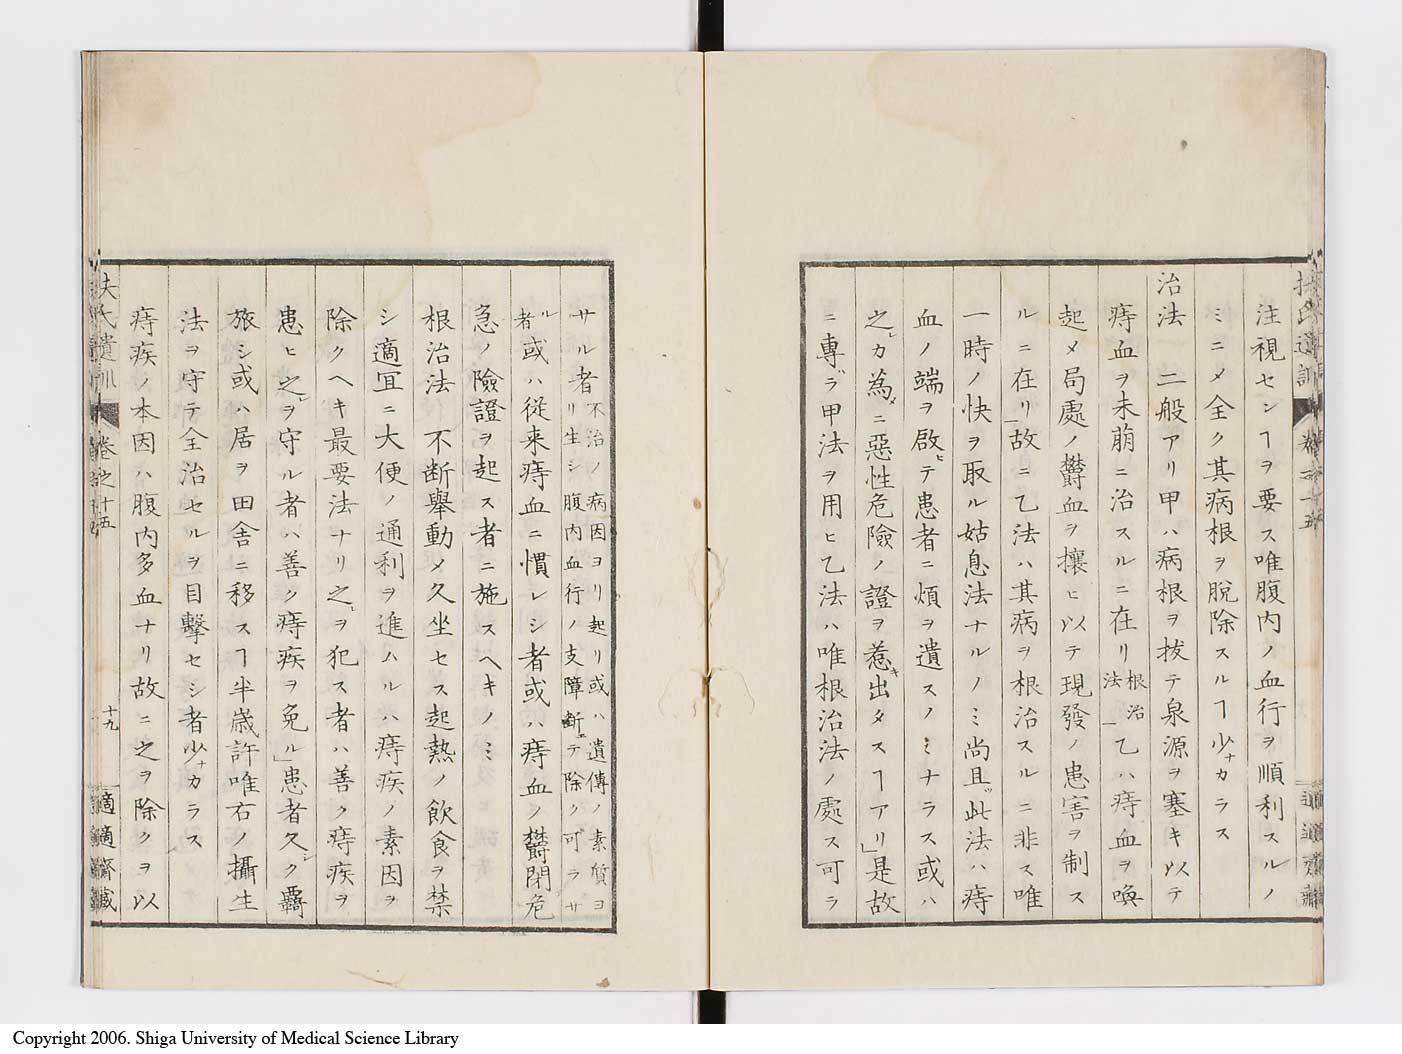 扶氏遺訓
注視センヿヲ要ス唯腹内ノ血行ヲ順利スルノ
ミニメ全ク其病根ヲ脱除スルヿ少ナカラス
治法 二般アリ甲ハ病根ヲ抜テ泉源ヲ塞キ以テ
痔血ヲ未萠ニ治スルニ在リ根治法」乙ハ痔血ヲ喚
起メ局處ノ欝血ヲ攘ヒ以テ現發ノ患害ヲ制ス
ルニ在リ」故ニ乙法ハ其病ヲ根治スルニ非ス唯
一時ノ快ヲ取ル姑息法ナルノミ尚且ツ此法ハ痔
血ノ端ヲ啟ヒテ患者ニ煩ヲ遺スノミナラス或ハ
之レカ為メニ惡性危險ノ證ヲ惹キ出タスヿアリ」是故
ニ專ラ甲法ヲ用ヒ乙法ハ唯根治法ノ處ス可ラ
サル者不治ノ病因ヨリ起リ或ハ遺傳ノ素質ヨ
リ生シ腹内血行ノ支障斷エテ除ク可ラサ
ル者或ハ従来痔血ニ慣レシ者或ハ痔血ノ欝閉危
急ノ險證ヲ起ス者ニ施スヘキノミ
根治法 不断舉動メ久坐セス起熱ノ飲食ヲ禁
シ適宜ニ大便ノ通利ヲ進ムルハ痔疾ノ素因ヲ
除クヘキ最要法ナリ之レヲ犯ス者ハ善ク痔疾ヲ
患ヒ之レヲ守ル者ハ善ク痔疾ヲ免ル」患者久シク覊
旅シ或ハ居ヲ田舎ニ移スヿ半歳許唯右ノ攝生
法ヲ守テ全治セルヲ目擊セシ者少ナカラス
痔疾ノ本因ハ腹内多血ナリ故ニ之ヲ除クヲ以
扶氏遺訓 卷之十五 十九 適適齋藏